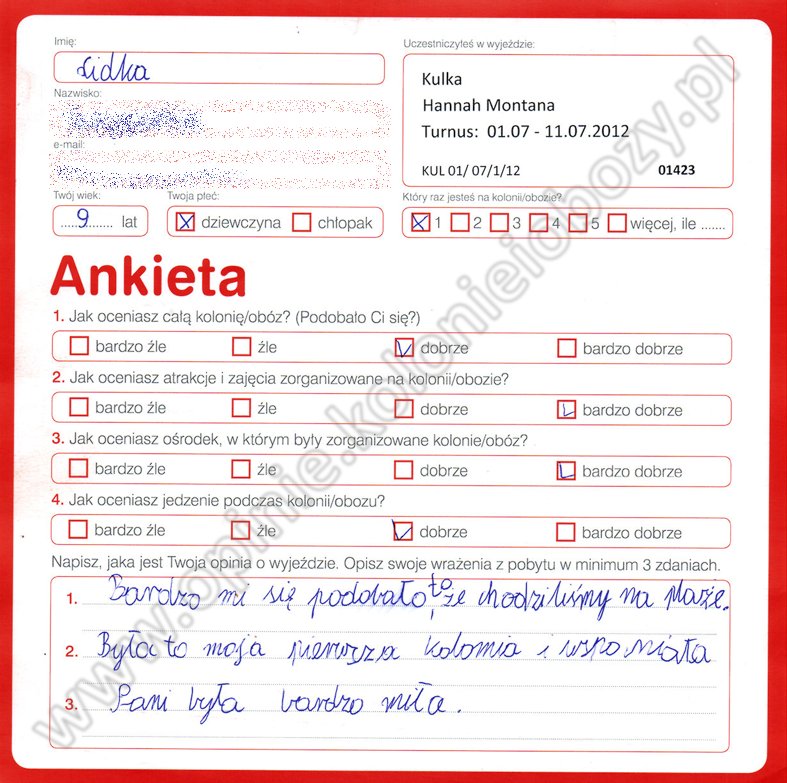 Imię:
Lidka
Uczestniczyłeś w wyjeździe:
Kulka
Hannah Montana
Turnus: 01.07 - 11.07.2012
KUL 01/ 07/1/12 01423
Nazwisko:
e-mail:
Twój wiek:
9 lat
Twoja płeć:
dziewczyna chłopak
Który raz jesteś na kolonii/obozie?
1 2 3 4 5 więcej, ile .......
Ankieta
1. Jak oceniasz całą kolonię/obóz? (Podobało Ci się?)
bardzo źle źle dobrze bardzo dobrze
2. Jak oceniasz atrakcje i zajęcia zorganizowane na kolonii/obozie?
bardzo źle źle dobrze bardzo dobrze
3. Jak oceniasz ośrodek, w którym były zorganizowane kolonie/obóz?
bardzo źle źle dobrze bardzo dobrze
4. Jak oceniasz jedzenie podczas kolonii/obozu?
bardzo źle źle dobrze bardzo dobrze
Napisz, jaka jest Twoja opinia o wyjeździe. Opisz swoje wrażenia z pobytu w minimum 3 zdaniach.
1. Bardzo mi się podobało to, że chodziliśmy na plaże.
2. Była to moja pierwsza kolonia i wspaniała
3. Pani była bardzo miła.
www.opinie.kolonieiobozy.pl